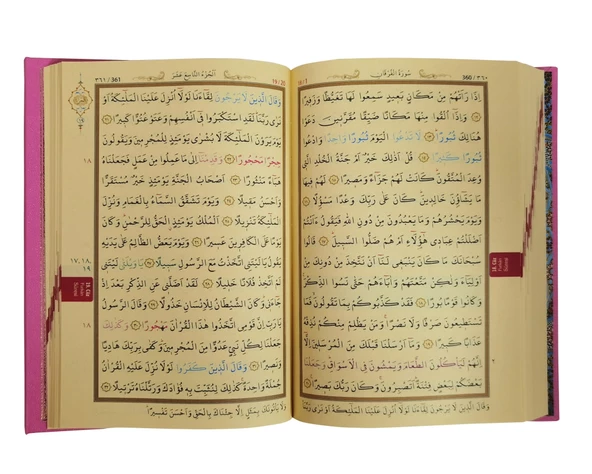 ٣٦٠ / 360
سُورَةُ الْفُرْقَانِ
اِذَا رَاَتْهُمْ مِنْ مَكَانٍ بَعِيدٍ سَمِعُوا لَهَا تَغَيُّظًا وَزَفِيرًا ﴿١٢﴾
وَاِذَٓا اُلْقُوا مِنْهَا مَكَانًا ضَيِّقًا مُقَرَّنِينَ دَعَوْا
هُنَالِكَ ثُبُورًا ﴿١٣﴾ لَا تَدْعُوا الْيَوْمَ ثُبُورًا وَاحِدًا وَادْعُوا
ثُبُورًا كَثِيرًا ﴿١٤﴾ قُلْ اَذٰلِكَ خَيْرٌ اَمْ جَنَّةُ الْخُلْدِ الَّتِي
وُعِدَ الْمُتَّقُونَ كَانَتْ لَهُمْ جَزَٓاءً وَمَصِيرًا ﴿١٥﴾ لَهُمْ فِيهَا
مَا يَشَٓاؤُنَ خَالِدِينَ كَانَ عَلٰى رَبِّكَ وَعْدًا مَسْؤُلًا ﴿١٦﴾
وَيَوْمَ يَحْشُرُهُمْ وَمَا يَعْبُدُونَ مِنْ دُونِ اللّٰهِ فَيَقُولُ ءَاَنْتُمْ
اَضْلَلْتُمْ عِبَادِي هٰٓؤُلَٓاءِ اَمْ هُمْ ضَلُّوا السَّبِيلَ ﴿١٧﴾ قَالُوا
سُبْحَانَكَ مَا كَانَ يَنْبَغِي لَنَٓا اَنْ نَتَّخِذَ مِنْ دُونِكَ مِنْ
اَوْلِيَٓاءَ وَلٰكِنْ مَتَّعْتَهُمْ وَاٰبَٓاءَهُمْ حَتّٰى نَسُوا الذِّكْرَ
وَكَانُوا قَوْمًا بُورًا ﴿١٨﴾ فَقَدْ كَذَّبُوكُمْ بِمَا تَقُولُونَ فَمَا
تَسْتَطِيعُونَ صَرْفًا وَلَا نَصْرًا وَمَنْ يَظْلِمْ مِنْكُمْ نُذِقْهُ
عَذَابًا كَبِيرًا ﴿١٩﴾ وَمَٓا اَرْسَلْنَا قَبْلَكَ مِنَ الْمُرْسَلِينَ اِلَّٓا
اِنَّهُمْ لَيَاْكُلُونَ الطَّعَامَ وَيَمْشُونَ فِي الْاَسْوَاقِ وَجَعَلْنَا
بَعْضَكُمْ لِبَعْضٍ فِتْنَةً اَتَصْبِرُونَ وَكَانَ رَبُّكَ بَصِيرًا ﴿٢٠﴾
وَقَالَ الَّذِينَ لَا يَرْجُونَ لِقَٓاءَنَا لَوْلَٓا اُنْزِلَ عَلَيْنَا الْمَلٰٓئِكَةُ اَوْ نَرٰى رَبَّنَا
اَلْجُزْءُ التَّاسِعَ عَشَرَ
٣٦١ / 361
وَقَالَ الَّذِينَ لَا يَرْجُونَ لِقَٓاءَنَا لَوْلَٓا اُنْزِلَ عَلَيْنَا الْمَلٰٓئِكَةُ اَوْ
نَرٰى رَبَّنَا لَقَدِ اسْتَكْبَرُوا فِٓي اَنْفُسِهِمْ وَعَتَوْ عُتُوًّا كَبِيرًا ﴿٢١﴾
يَوْمَ يَرَوْنَ الْمَلٰٓئِكَةَ لَا بُشْرٰى يَوْمَئِذٍ لِلْمُجْرِمِينَ وَيَقُولُونَ
حِجْرًا مَحْجُورًا ﴿٢٢﴾ وَقَدِمْنَٓا اِلٰى مَا عَمِلُوا مِنْ عَمَلٍ فَجَعَلْنَاهُ
هَبَٓاءً مَنْثُورًا ﴿٢٣﴾ اَصْحَابُ الْجَنَّةِ يَوْمَئِذٍ خَيْرٌ مُسْتَقَرًّا
وَاَحْسَنُ مَقِيلًا ﴿٢٤﴾ وَيَوْمَ تَشَقَّقُ السَّمَٓاءُ بِالْغَمَامِ وَنُزِّلَ
الْمَلٰٓئِكَةُ تَنْزِيلًا ﴿٢٥﴾ اَلْمُلْكُ يَوْمَئِذٍ الْحَقُّ لِلرَّحْمٰنِ وَكَانَ
يَوْمًا عَلَى الْكَافِرِينَ عَسِيرًا ﴿٢٦﴾ وَيَوْمَ يَعَضُّ الظَّالِمُ عَلٰى يَدَيْهِ
يَقُولُ يَا لَيْتَنِي اتَّخَذْتُ مَعَ الرَّسُولِ سَبِيلًا ﴿٢٧﴾ يَا وَيْلَتٰى لَيْتَنِي
لَمْ اَتَّخِذْ فُلَانًا خَلِيلًا ﴿٢٨﴾ لَقَدْ اَضَلَّنِي عَنِ الذِّكْرِ بَعْدَ اِذْ
جَٓاءَنِي وَكَانَ الشَّيْطَانُ لِلْاِنْسَانِ خَذُولًا ﴿٢٩﴾ وَقَالَ الرَّسُولُ
يَا رَبِّ اِنَّ قَوْمِي اتَّخَذُوا هٰذَا الْقُرْاٰنَ مَهْجُورًا ﴿٣٠﴾ وَكَذٰلِكَ
جَعَلْنَا لِكُلِّ نَبِيٍّ عَدُوًّا مِنَ الْمُجْرِمِينَ وَكَفٰى بِرَبِّكَ هَادِيًا
وَنَصِيرًا ﴿٣١﴾ وَقَالَ الَّذِينَ كَفَرُوا لَوْلَا نُزِّلَ عَلَيْهِ الْقُرْاٰنُ
جُمْلَةً وَاحِدَةً كَذٰلِكَ لِنُثَبِّتَ بِهِ فُؤَادَكَ وَرَتَّلْنَاهُ تَرْتِيلًا ﴿٣٢﴾
وَلَا يَاْتُونَكَ بِمَثَلٍ اِلَّا جِئْنَاكَ بِالْحَقِّ وَاَحْسَنَ تَفْسِيرًا